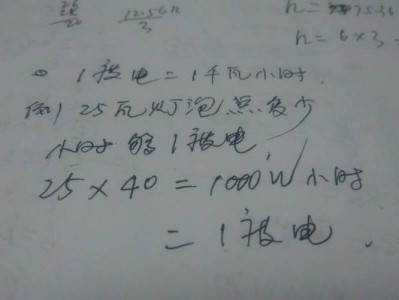 12.56h
3
h=6×3
1度电=1千瓦小时.
例 25瓦灯泡点多少
小时够1度电
25×40=1000W小时
=1度电.